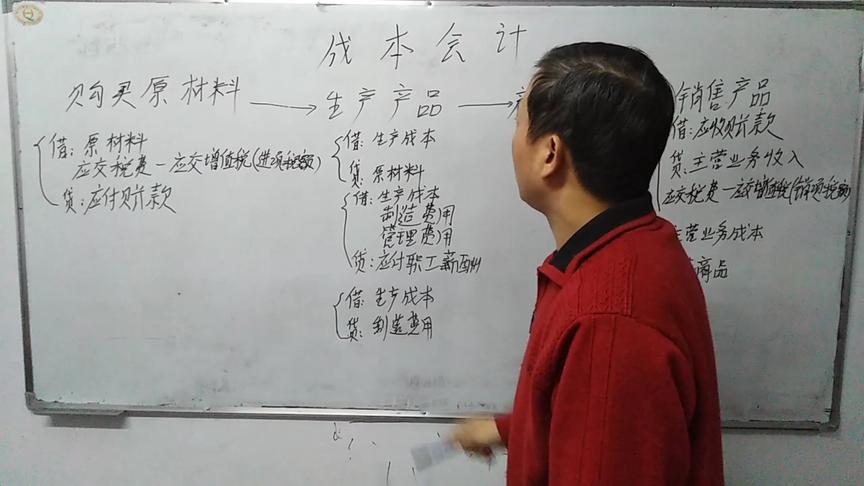 成本会计
购买原材料 → 生产产品 →
销售产品
借: 原材料
应交税费-应交增值税(进项税额)
贷: 应付账款
借: 生产成本
贷: 原材料
借: 生产成本
制造费用
管理费用
贷: 应付职工薪酬
借: 生产成本
贷: 制造费用
借: 应收账款
贷: 主营业务收入
应交税费-应交增值税(销项税额)
主营业务成本
商品